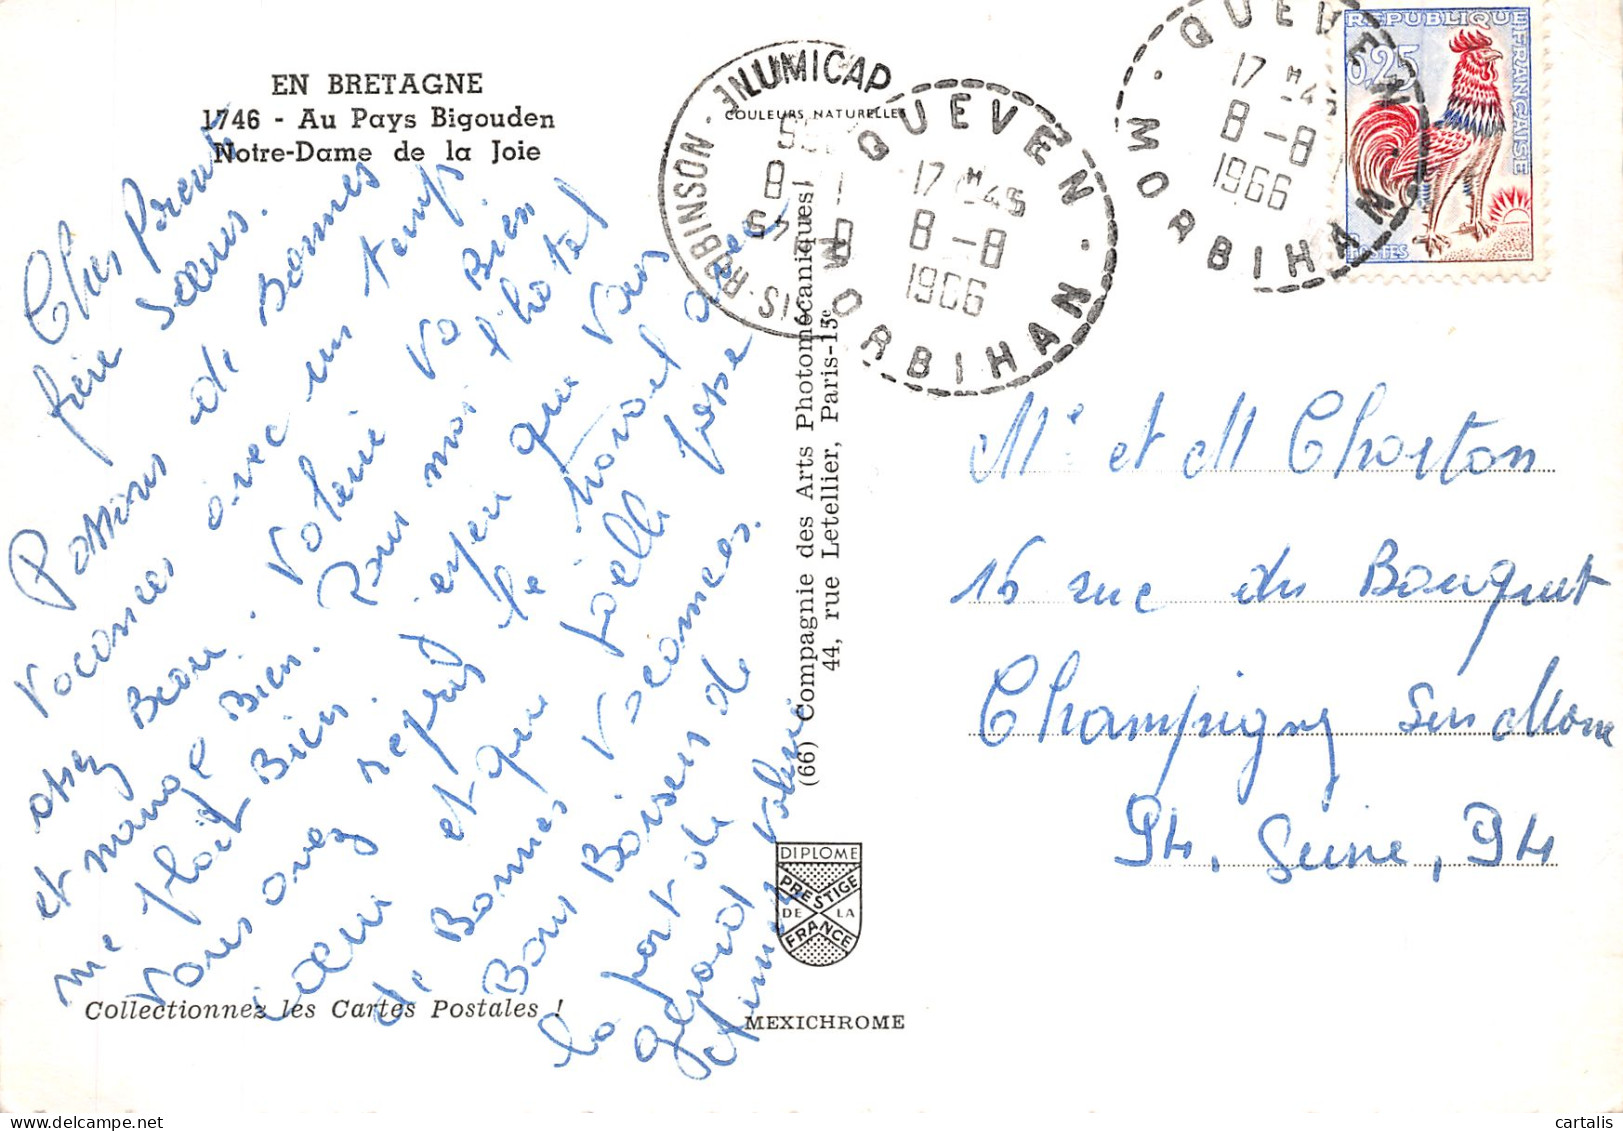 EN BRETAGNE
1746 - Au Pays Bigouden
Notre-Dame de la Joie
Chers Parents
frère Soeurs.
Passons de Bonnes
Vacances avec un temps
assez Beau. Valerie va Bien
et mange Bien. Pour moi l'hotel
me plait Bien. enfin que Vous
Vous avez repris le avec
Coeur et que Joelle passe
de Bonnes Vacances.
Bons Baisers de
la part de
Gerard Valerie
LUMICAP
COULEURS NATURELLES
IS-ROBINSON
QUEVEN
17 H 45
8 -8
1966
MORBIHAN
QUEVEN
17 H 45
8 -8
1966
MORBIHAN
REPUBLIQUE FRANÇAISE
0,25
POSTES
(66) Compagnie des Arts Photomécaniques
44, rue Letellier, Paris-15e
Me et M Charton
16 rue du Bouquet
Champigny Sur Marne
94, Seine, 94
DIPLOME
PRESTIGE
DE LA
FRANCE
Collectionnez les Cartes Postales !
MEXICHROME
cartalis